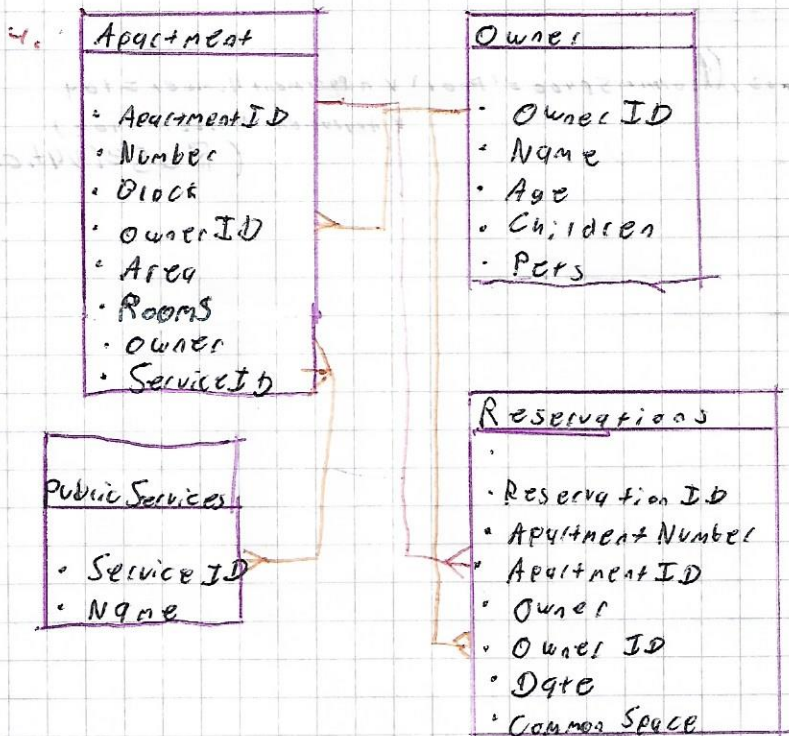 4.
Apartment
• ApartmentID
• Number
• Block
• OwnerID
• Area
• Rooms
• Owner
• ServiceID
Owner
• OwnerID
• Name
• Age
• Children
• Pets
Public Services
• ServiceID
• Name
Reservations
•
• ReservationID
• Apartment Number
• ApartmentID
• Owner
• Owner ID
• Date
• Common Space